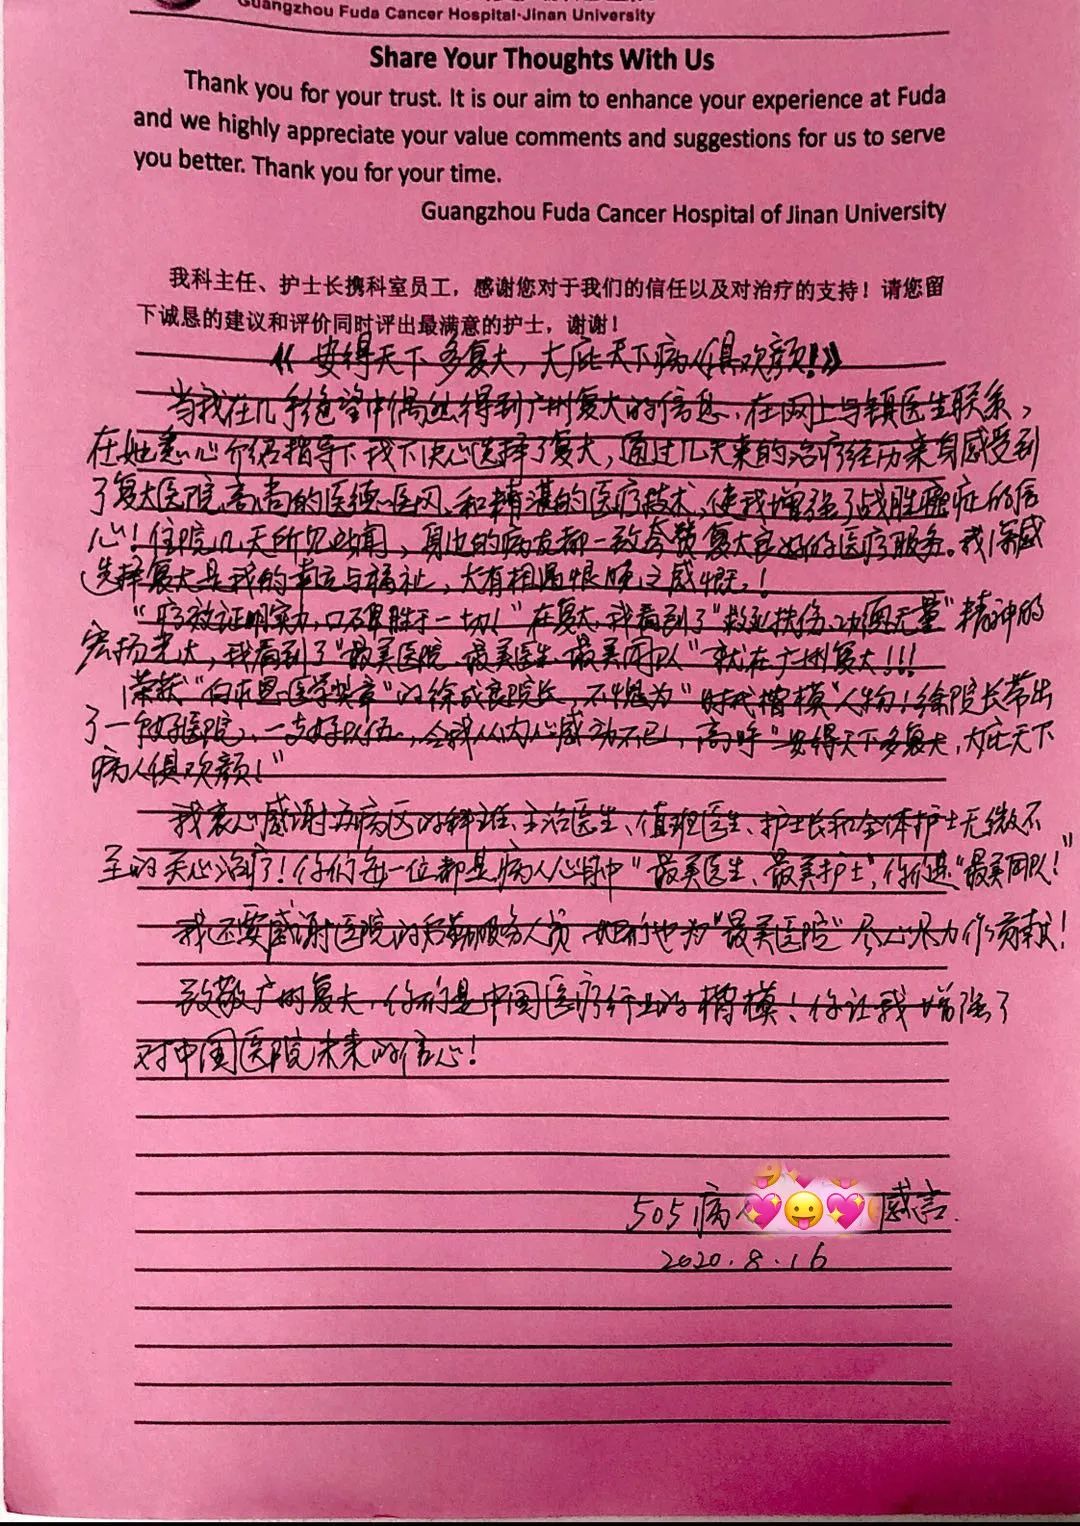 Guangzhou Fuda Cancer Hospital·Jinan University
Share Your Thoughts With Us
Thank you for your trust. It is our aim to enhance your experience at Fuda
and we highly appreciate your value comments and suggestions for us to serve
you better. Thank you for your time.
Guangzhou Fuda Cancer Hospital of Jinan University
我科主任、护士长携科室员工，感谢您对于我们的信任以及对治疗的支持！请您留
下诚恳的建议和评价同时评出最满意的护士，谢谢！
《安得天下多复大，大庇天下病人俱欢颜！》
当我在几乎绝望中偶然得到广州复大的信息，在网上与镇医生联系，
在她悉心介绍指导下我下决心选择了复大，通过几天来的治疗经历亲身感受到
了复大医院高尚的医德医风、和精湛的医疗技术，使我增强了战胜癌症的信
心！住院几天所见所闻，身边的病友都一致夸赞复大良好的医疗服务。我深感
选择复大是我的幸运与福祉，大有相遇恨晚之感慨！
“疗效证明实力，口碑胜于一切！”在复大，我看到了“救死扶伤、功德无量”精神的
宏扬光大，我看到了“最美医院、最美医生、最美团队”就在广州复大！！！
荣获“白求恩医学奖章”的徐成良院长，不愧为“时代楷模”人物！徐院长带出
了一个好医院、一支好队伍，令我从内心感动不已，高呼“安得天下多复大，大庇天下
病人俱欢颜！”
我衷心感谢五病区的科主任、主治医生、值班医生、护士长和全体护士无微不
至的关心治疗！你们每一位都是病人心目中“最美医生、最美护士”，你们是“最美团队！”
我还要感谢医院的后勤服务人员，她们也为“最美医院”尽心尽力作贡献！
致敬广州复大，你们是中国医疗行业的楷模！你让我增强了
对中国医院未来的信心！
505病人 感言
2020.8.16